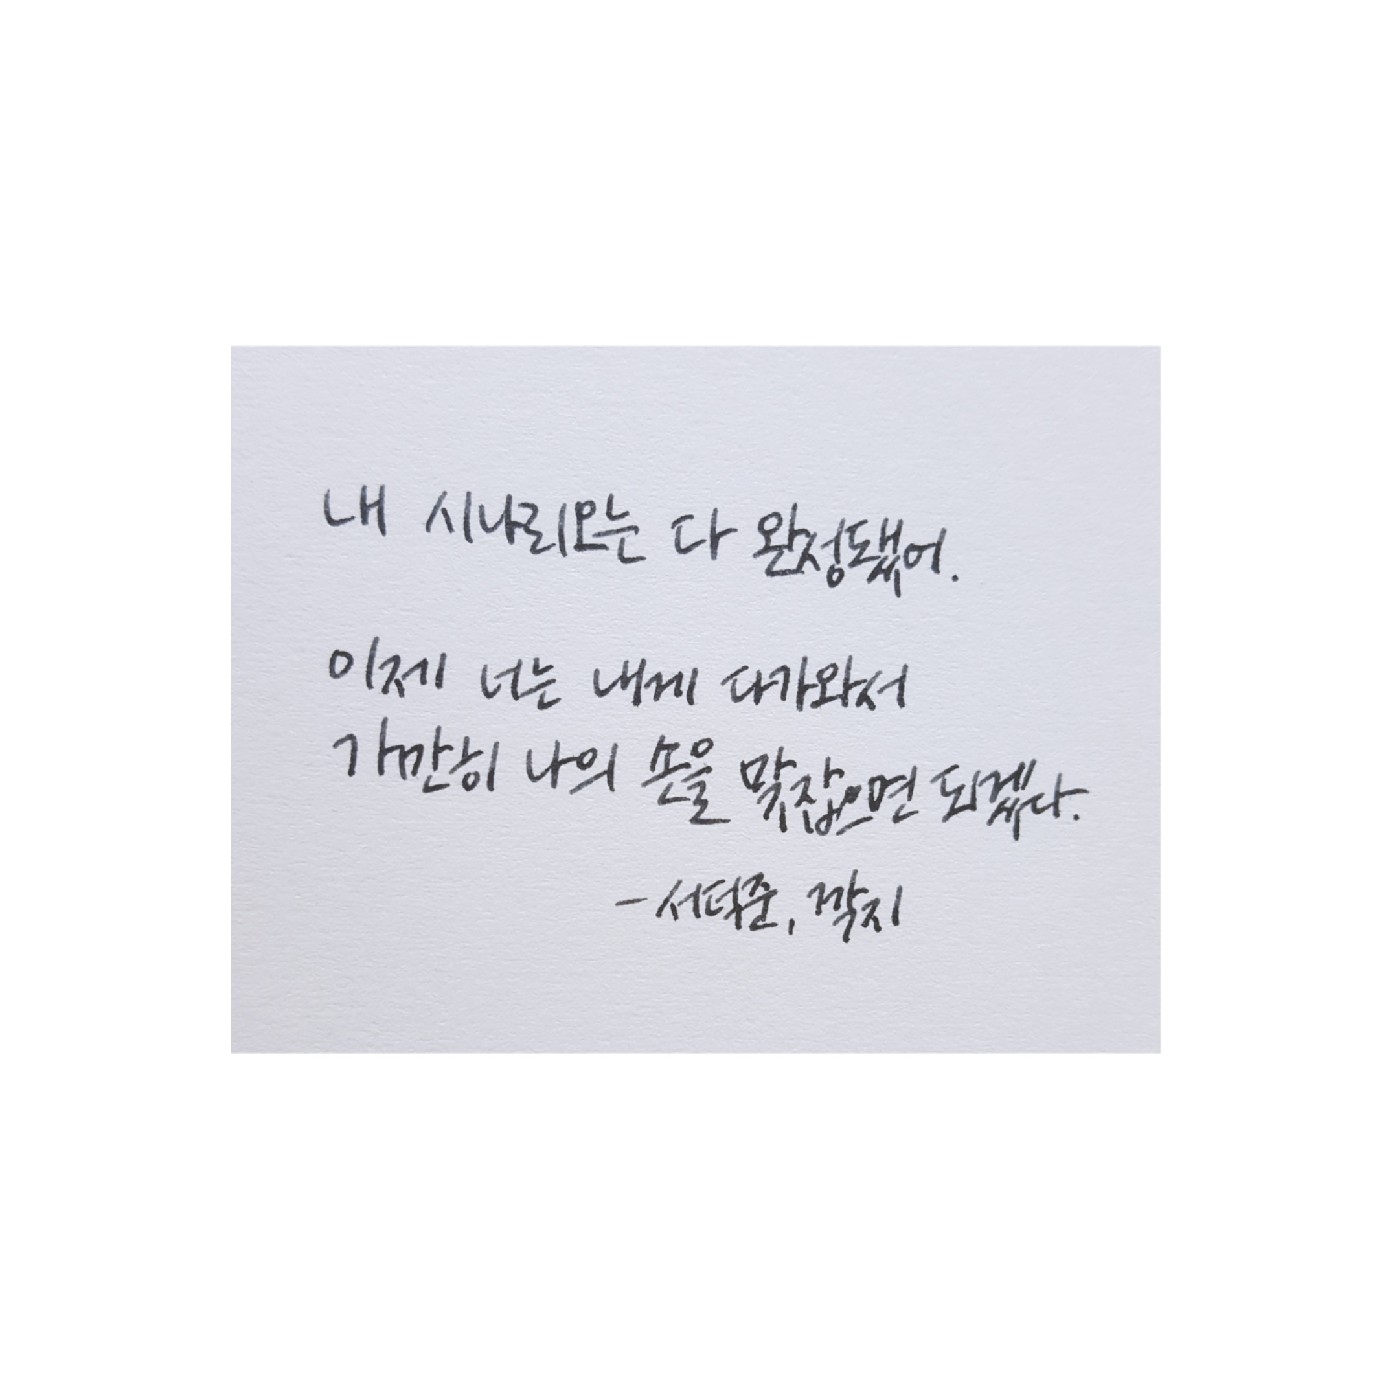 내 시나리오는 다 완성됐어.
이제 너는 내게 다가와서
가만히 나의 손을 맞잡으면 되겠다.
- 서덕준, 깍지